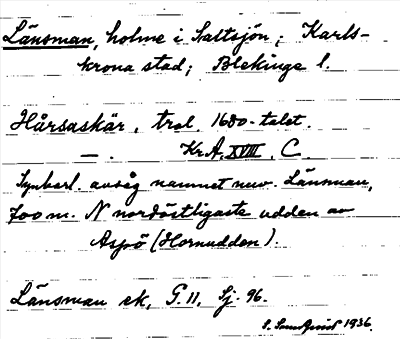 Länsman, holme i Saltsjön; Karls-
krona stad; Blekinge l.
Hårsaskär, trol. 1680-talet.
— . Kr.A. XVIII. C.
Synbarl. avsåg namnet nuv. Länsman,
700 m. N nordöstligaste udden av
Aspö (Hornudden).
Länsman ek, G. 11, Sj. 96.
1936.